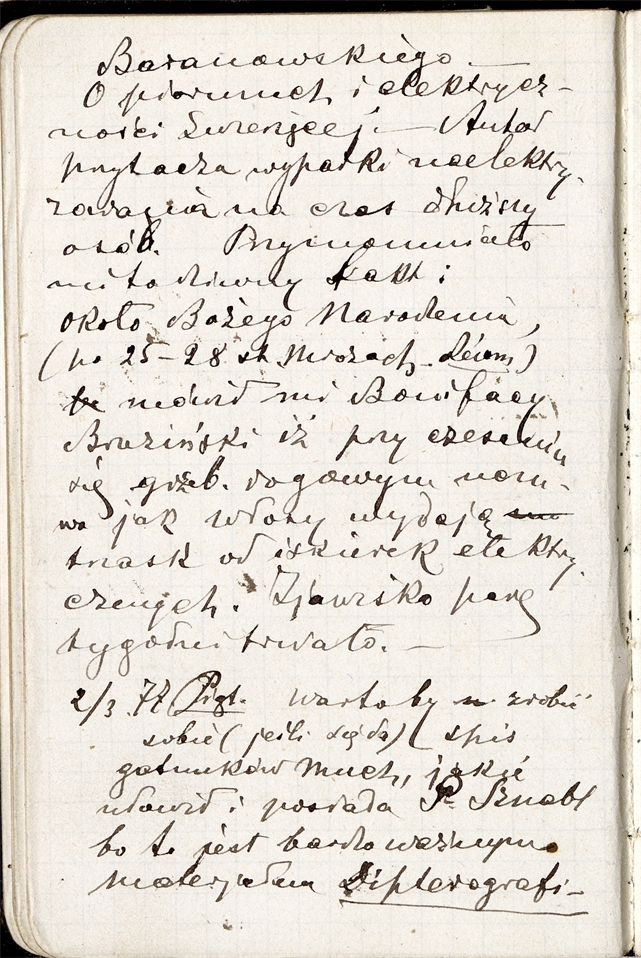 Baranowskiego. —
O piorunach i elektrycz-
ności — Autor
przytacza wypadki naelektry-
zowania na czas dłuższy
osób. Przypomniało
mi to dziwny fakt:
około Bożego Narodzenia,
(po 25–28 st. mrozach )
mówił mi Bonifacy
Bruziński iż przy czesaniu
się grzeb. rogowym
jak włosy wydają
trzask od iskierek elektry-
cznych. Zjawisko parę
tygodni trwało. —
2/3 77 Piąt. Warto by zrobić
sobie (jeśli się da) spis
gatunków much, jakie
ułowił i posiada P. Sznabl
bo to jest bardo ważnym
materjałem Dipterografi-